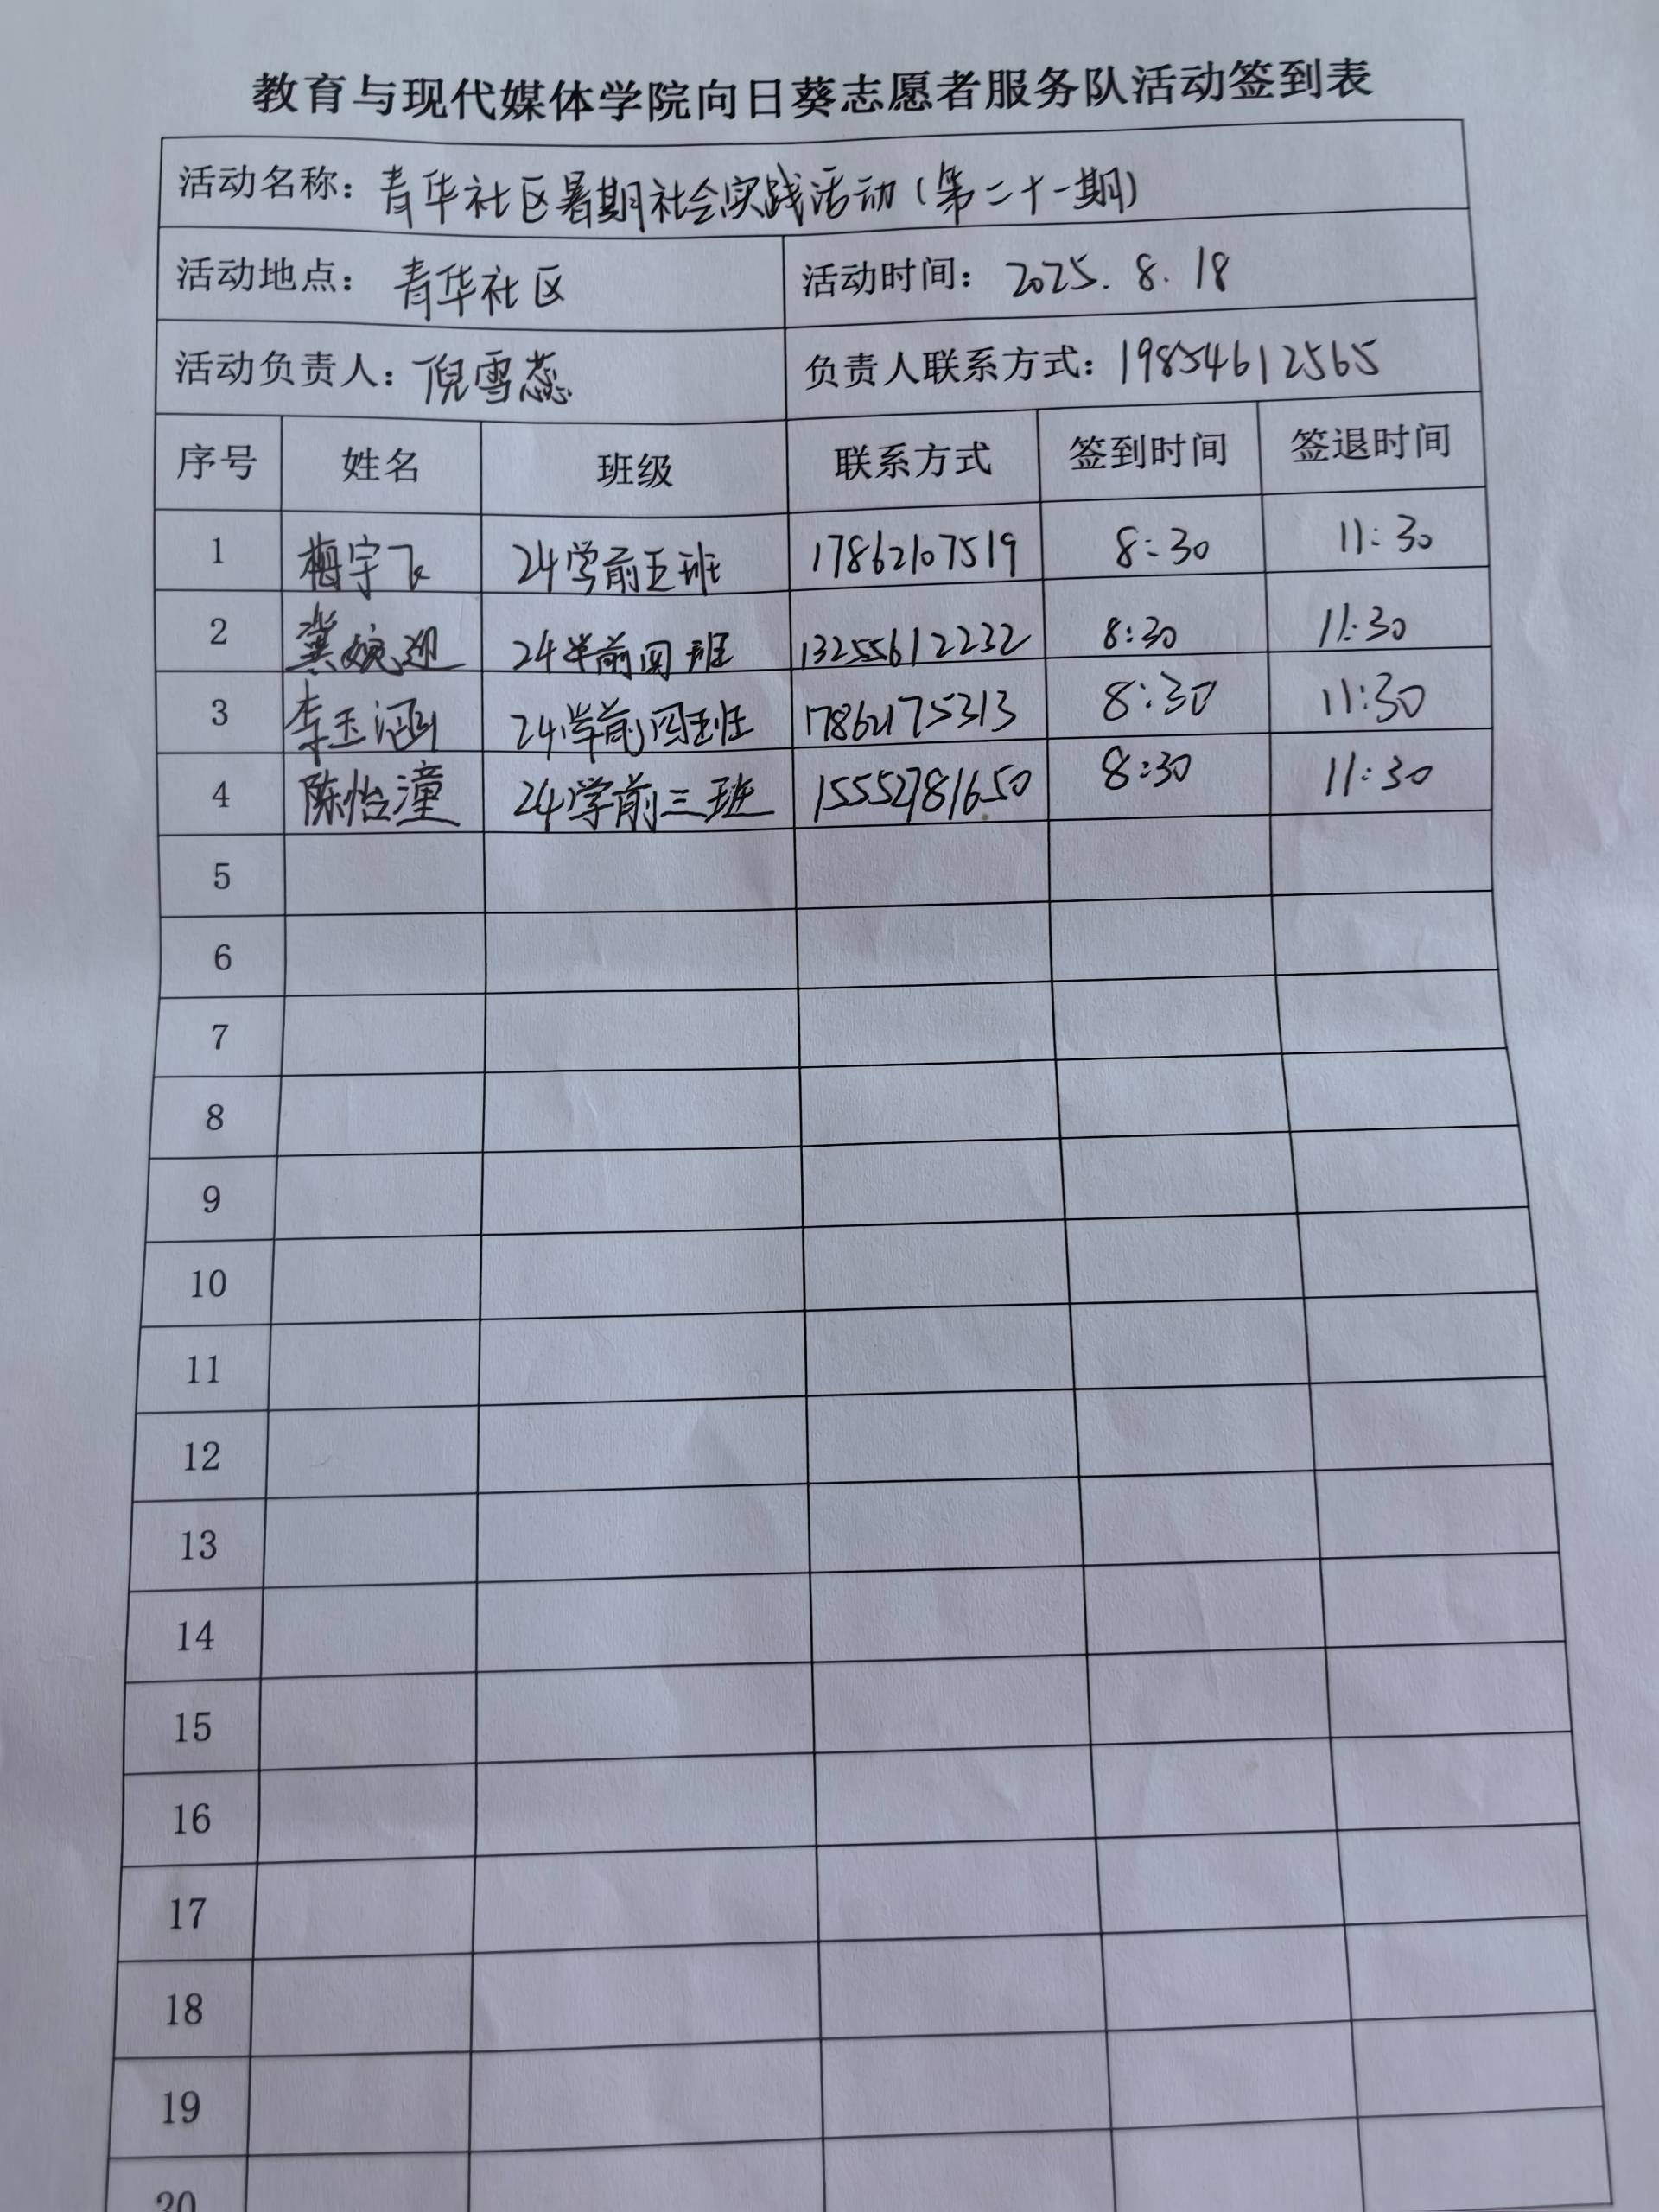 教育与现代媒体学院向日葵志愿者服务队活动签到表
活动名称：青华社区暑期社会实践活动（第二十一期）
活动地点：青华社区 活动时间：2025.8.18
活动负责人：倪雪蕊 负责人联系方式：19854612565
序号 姓名 班级 联系方式 签到时间 签退时间
1 梅宇飞 24学前五班 17862107519 8:30 11:30
2 冀婉迎 24学前四班 13255612232 8:30 11:30
3 李玉涵 24学前四班 17862175313 8:30 11:30
4 陈怡潼 24学前三班 15552781650 8:30 11:30
5
6
7
8
9
10
11
12
13
14
15
16
17
18
19
20